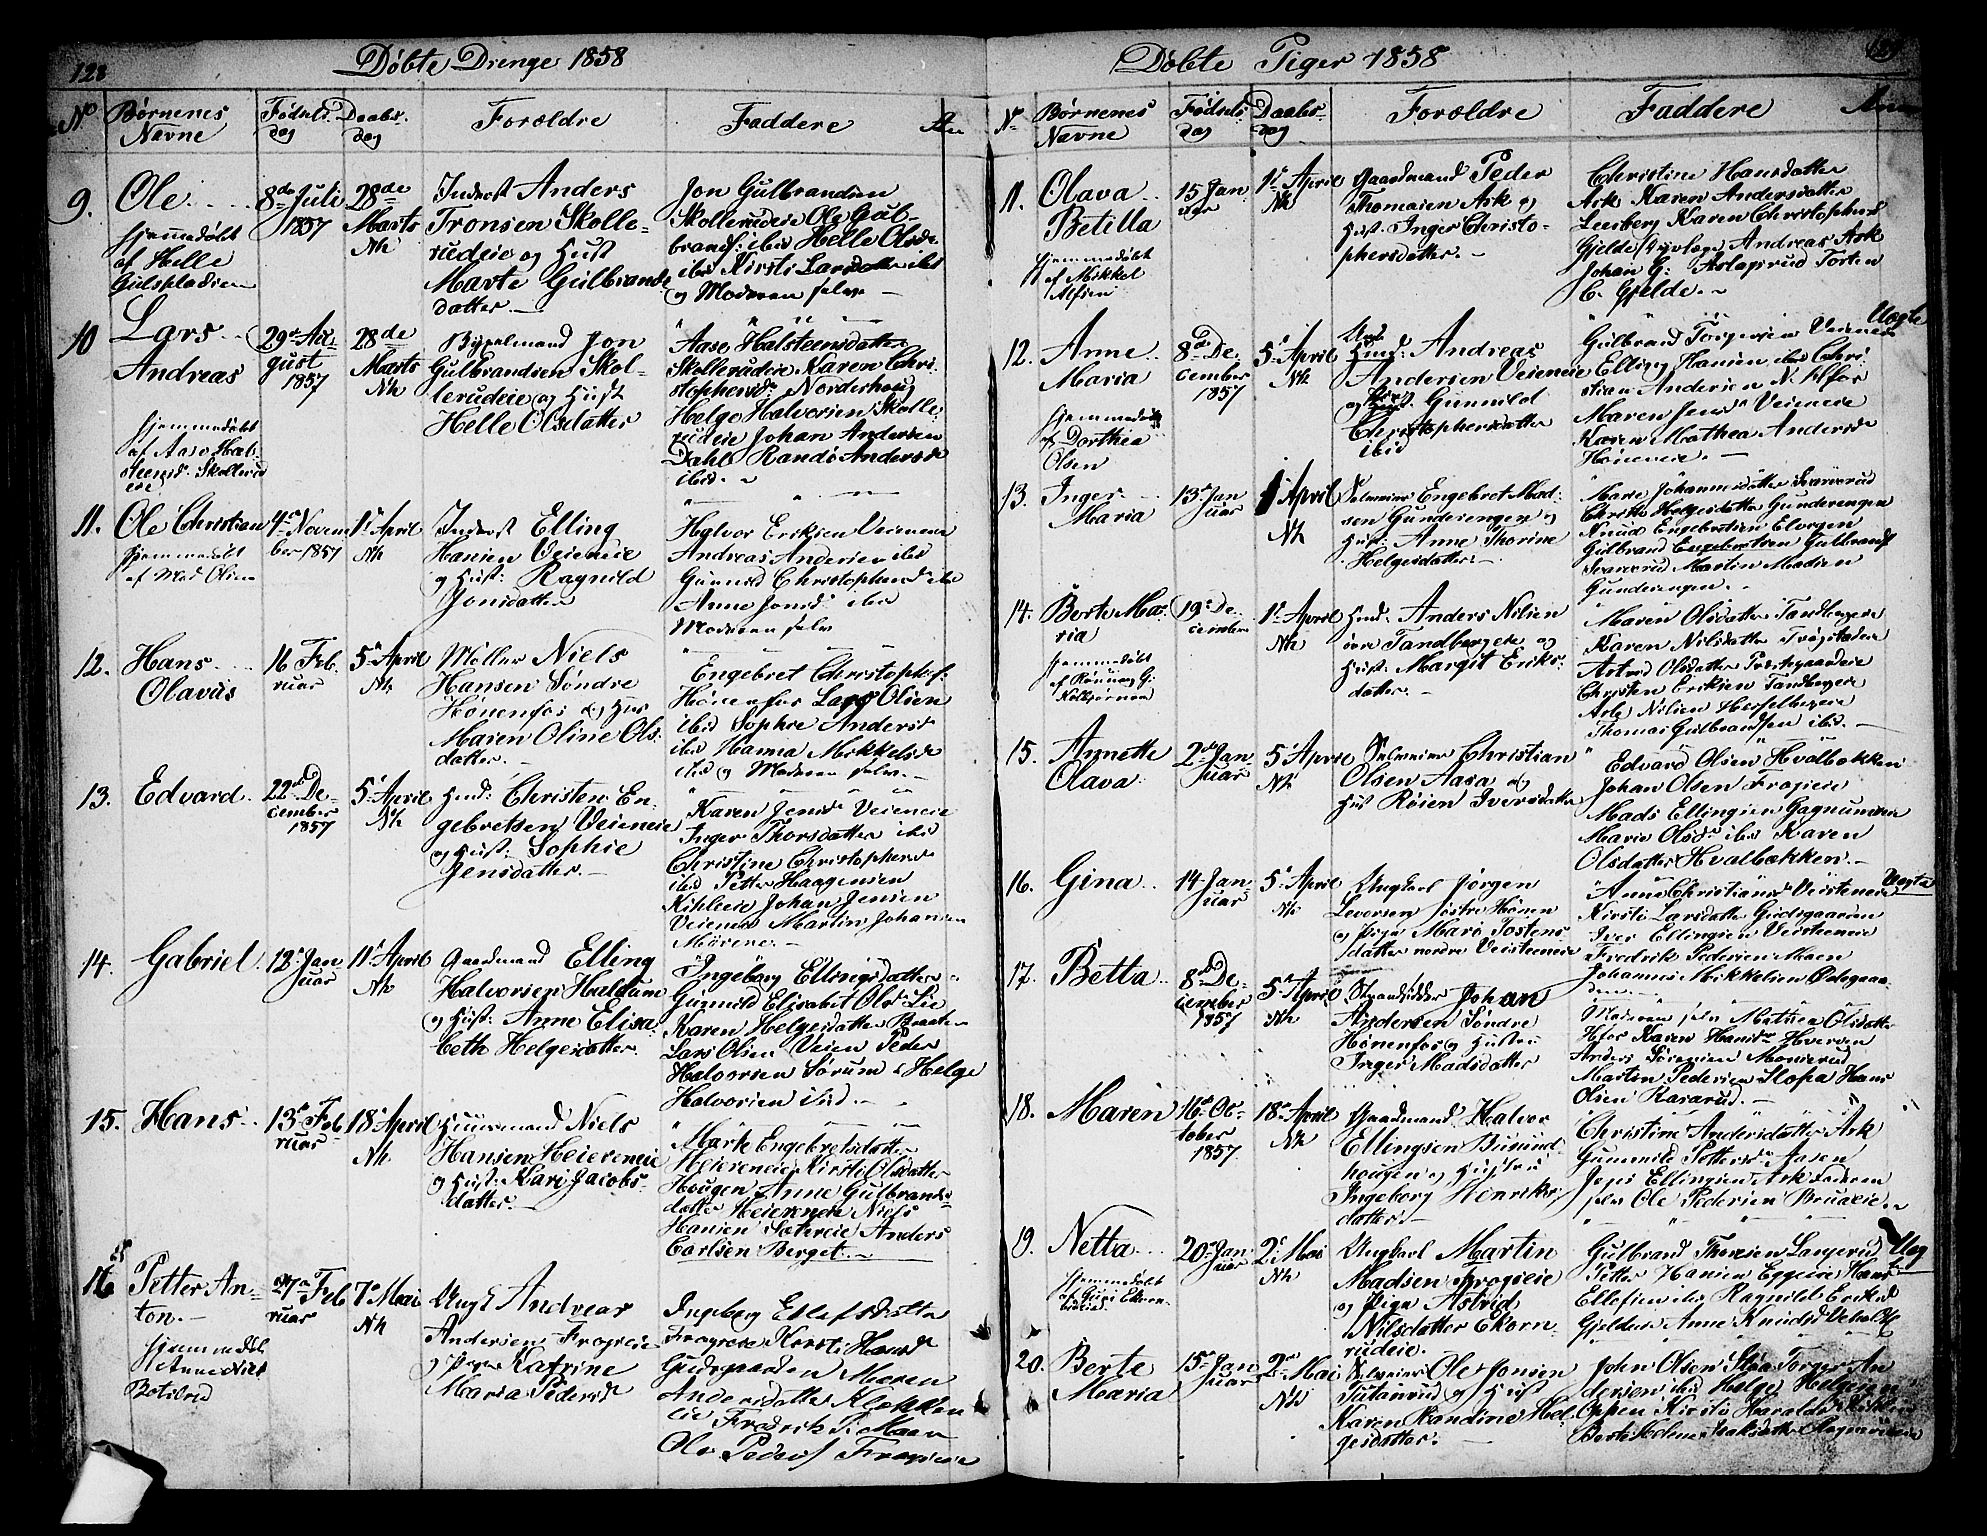 128
Døbte Drenge 1858
No
Børnenes Navne
Fødsels dag
Daabs dag
Forældre
Faddere
An
9.
Ole
hjemmedøbt
af Helle
Gulspladsen
8de Juli
1857
28de
Marts
Nk
Inderst Anders
Tronsen Skolle-
rudeie og Hust
Marte Gulbrands
datter.
Jon Gulbrandsen
Skollerudeie Ole Gul-
brands: ibid Helle Olsd.
ibid Kirsti Larsdatter ibid
og Moderen selv
10
Lars
Andreas
hjemmedøbt
af Aase Hal-
steensd. Skollerud
eie
29de Au-
gust
1857
28de
Marts
Nk
Bygselmand Jon
Gulbrandsen Skol-
lerudeie og Hust
Helle Olsdatter
Aase Halsteensdatter
Skollerudeie Karen Chri-
stophersd. Norderhoug
Helge Halvorsen Skolle-
rudeie Johan Andersen
Dahl Randi Andersd
ibid.
11.
Ole Christian
hjemmedøbt
af Mad Olsen
4de Novem
ber 1857
1st April
Nk
Inderst Elling
Hansen Veieneie
og Hust: Ragnild
Jonsdatter
Halvor Eriksen Veieneie
Andreas Andersen ibid
Gunnild Christophersd ibid
Anne Jonsd. ibid
Moderen selv
12.
Hans
Olavus
16 Feb
ruar
5te April
Nk
Møller Niels
Hansen Søndre
Hønenfos og Hus
Maren Oline Ols-
datter.
Engebret Christophs:
Hønenfos Lars Olsen
ibid Sophie Andersd
ibid Hanna Mikkelsd
ibid og Moderen selv.
13.
Edvard.
22de De-
cember
1857
5te April
Nk
Hmd: Christen En-
gebretsen Veieneie
og Hust: Sophie
Jensdatter.
Karen Jensd Veieneie
Inger Thorsdatter ibid
Christine Christophersd
ibid Petter Haagensen
Kihleeie Johan Jensen
Veienen Martin Johansen
Morene.
14.
Gabriel.
12te Jan
uar
11te April
Nk
Gaardmand Elling
Halvorsen Haldum
og Hust: Anne Elisa-
beth Helgesdatter.
Ingeborg Ellingsdatter
Gunnild Elisabet Olsd. Lie
Karen Helgesdatter Braaten
Lars Olsen Veien Peder
Halvorsen Sørum Helge
Halvorsen ibid.
15.
Hans
13de Feb
ruar
18de April
Nk
Huusmand Niels
Hansen Heiereneie
og Hust: Kari Jacobs-
datter.
Marte Engebretsdatter
Heiereneie Kirsti Olsdatter
Hougen Anne Gulbrands-
datter Heiereneie Niels
Hansen Sætereie Anders
Carlsen Berget.
16
Petter An-
ton.
hjemmedøbt
af Anne Niels
27de Feb
ruar
7de Mai
Nk
Ungk Andreas
Andersen Frogneie
og Pigen Katrine
Maria Pedersd
Ingeborg Ellefsdatter
Kirsti Hansd
Gudsgaarden Maren
Andersdatter Klokken
eie Fredrik P. Moen
Ole Peders
129
Døbte Piger 1858
Nr
Børnenes Navne
Fødsels dag
Daabs-dag
Forældre
Faddere
Anm
11.
Olava
Betilla
hjemmedøbt
af Mikkel
Alfsen
15 Jan
uar
1st April
Nk
Gaardmand Peder
Thomasen Ask og
Hust. Inger Christo-
phersdatter.
Christine Hansdatter
Ask Karen Andersdatter
Karen Christophersd
Gjelde Andreas Ask
Johan G: Aslagsrud Torsten
C. Gjelde.
12.
Anne
Maria
hjemmedøbt
af Dorthea
Olsen
8de De-
cember
1857
5te April
Nk
Andreas
Andersen Veieneie
og Gunnild
Christophersdatter
ibid
Gulbrand Torgersen Veienen Uægte
Elling Hansen ibid Chri-
stian Andersen N. Hfos
Maren Jensd Veieneie
Karen Mathea Andersd
Høneneie.
13.
Inger
Maria
13de Jan
uar
1 April
Nk
Selveier Engebret Mad-
sen Gundersengen og
Hust: Anne Thorine
Helgesdatter.
Marie Johannesdatter Svarverud
Christi Helgesdatter Gunderengen
Knud Engebretsen Elvegen
Gulbrand Engebretsen Gulbrands
Svarverud Martin Madsen
Gunderengen.
14.
Berte Ma-
ria
hjemmedøbt
af Rønnaug G:
Kolbjørnsen
19de De-
cember
1st April
Nk
Hmd. Anders Nilsen
Tandbergeie og
Hust: Margit Eriks-
datter.
Maren Olsdatter Tandbergeie
Karen Nilsdatter
Astrid Olsdatter
Christen Eriksen Tandbergeie
Arle Nilsen Hesselbergeie
Thomas Gulbrandsen ibid.
15.
Annette
Olava.
2den Jan
uar
5te April
Nk
Selveier Christian
Olsen Aasa og
Hust Røien Iversdatter
Edvard Olsen Hvalbækken
Johan Olsen Frogeie
Mads Ellingsen Gagnumseie
Marie Olsdr ibid Karen
Olsdatter Hvalbækken.
16.
Gina.
14 Jan-
uar
5te April
Nk
Ungkarl Jørgen
Levorsen Østre Hønen
og Pigen Mari Tostens
datter nordre Veisteneie
Anne Christiansd Veisteneie Uægte
Kirsti Larsdatter Gudsgaarden
Iver Ellingsen Veisteneie
Fredrik Pedersen Moen
Johannes Mikkelsen Ødegaar-
den
17.
Betta.
8de De-
cember
1857
5te April
Nk
Strandsidder Johan
Andersen Søndre
Hønenfos og Hustru
Inger Madsdatter
Moderen selv Mathea Olsdatter
Hfos Karen Hansdtr Hverven
Anders Sørensen Monserud
Martin Pedersen Hofsa Hans
Olsen Kararud.
18.
Maren
16de Oc-
tober
1857
18de April
Nk
Gaardmand Halvor
Ellingsen Busund-
hougen og Hustru
Ingeborg Henriks-
datter.
Christine Andersdatter Ask
Gunnild Pettersd Aasen
Jens Ellingsen Ask Faderen
selv Ole Pedersen Bruaeie.
19.
Netta
hjemmedøbt
af Guri Ekorn-
rudeie
20de Jan
uar
2den Mai
Nk
Ungkarl Martin
Madsen Frogseie
og Pige Astrid
Nilsdatter Ekorn-
rudeie.
Gulbrand Thoresen Langerud Uæg
Petter Hansen Eggeeie Hans
Ellefsen ibid Ragnild Eriksd
Gjelden Anne Knudsd
20.
Berte
Maria
15de Jan
uar
2den Mai
Nk
Selveier Ole Jonsen
og Hust
Karen Randine Hel-
gesdatter.
John Olsen Stöa Torger An
dersen ibid Helge Helgesen
Oppen Kirsti Haraldsd